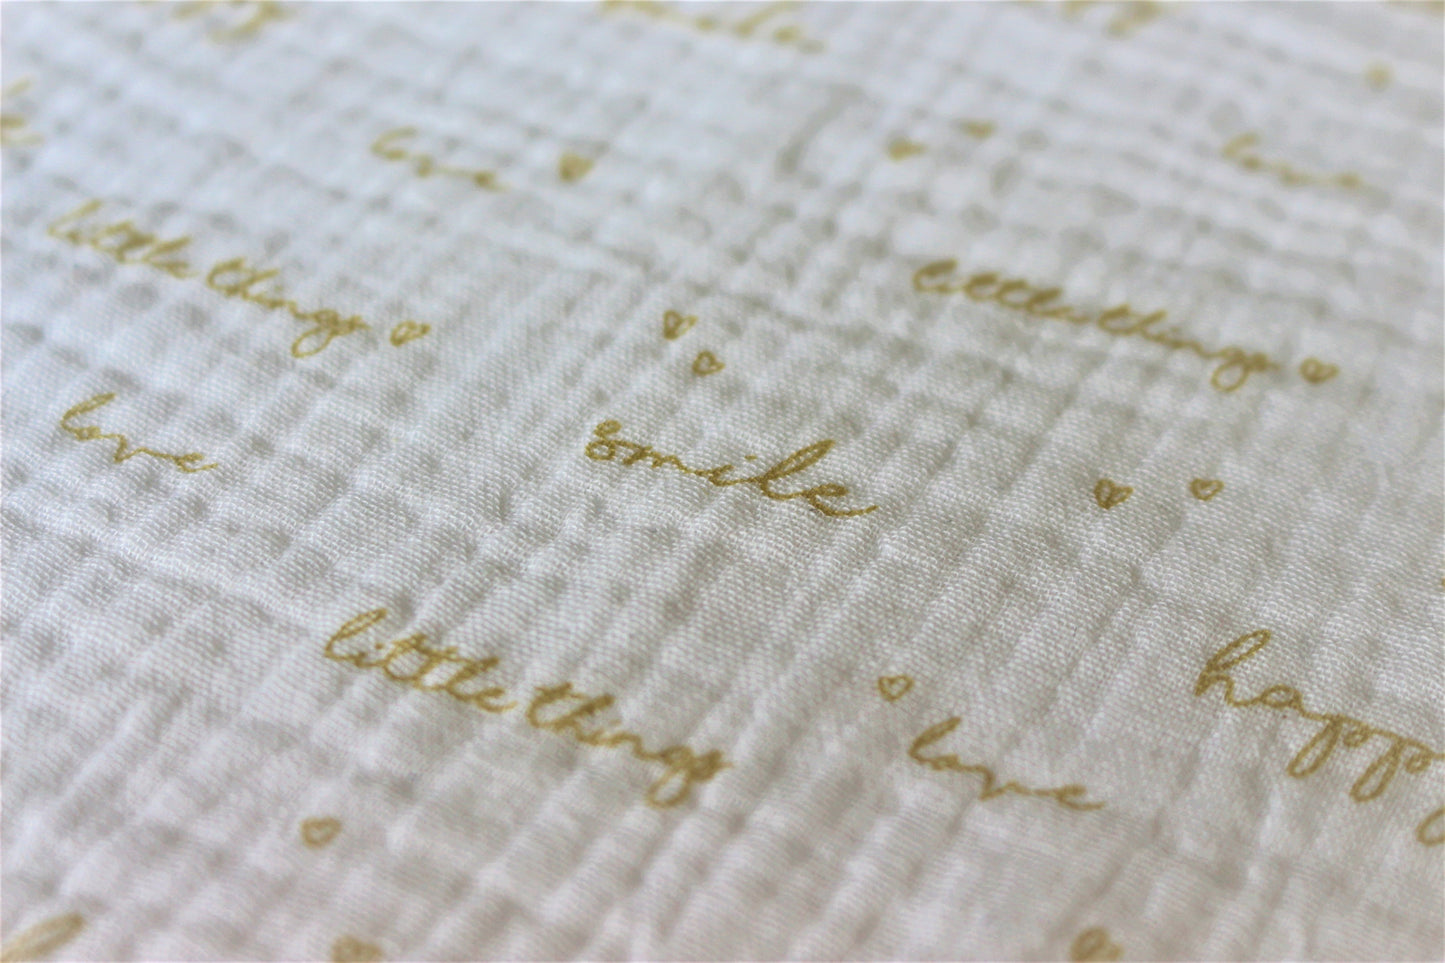 smile
love
love
little things
little things
love
smile
little things
love
happy